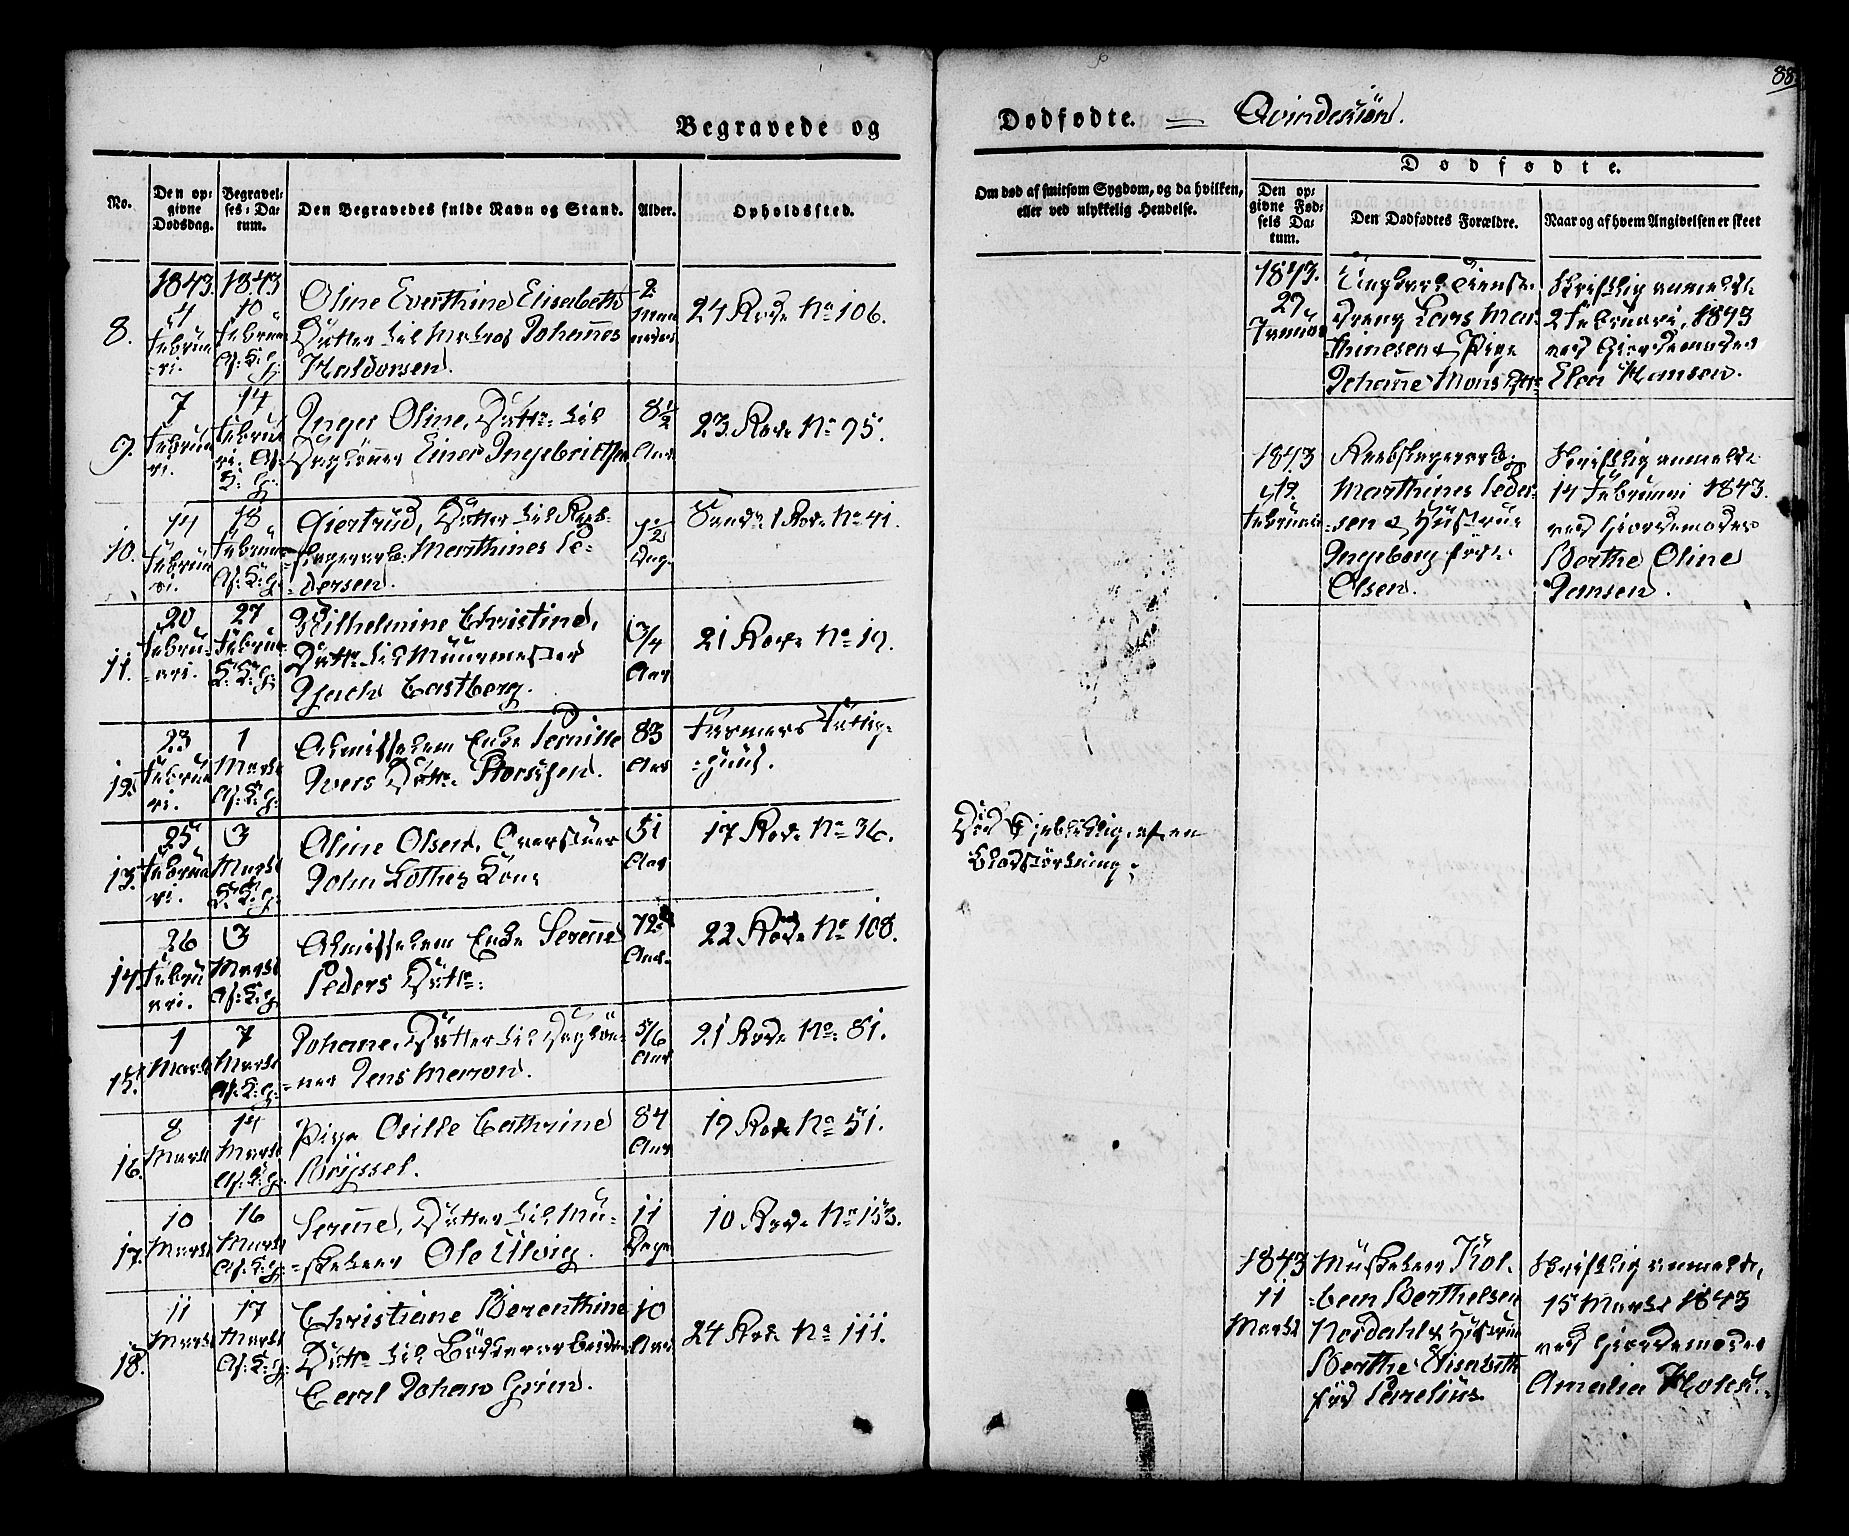 88
Begravede og
Dødfødte. = Qvindekiøn.
No.
Den opgivne Dødsdag.
Begravelses-Datum.
Den Begravedes fulde Navn og Stand.
Alder.
Opholdssted.
Om død af smitsom Sygdom, og da hvilken,
eller ved ulykkelig Hendelse.
Dødfødte.
Den opgivne Fødsels Datum.
Den Dødfødtes Forældre.
Naar og af hvem Angivelsen er skeet
8.
1843. 4 Februari.
1843 10 Februari
Oline Everthine Elisabeth
Datter til Matros Johannes
Haldorsen.
2 Maaneder
24 Rode No 106.
9.
7 Februari.
14 Februari
Inger Oline, Dattr til
Dagløner Einer Ingebrigtsen
8 1/2 Aar
23 Rode No 95.
10.
14 Februari.
18 Februari
Giertrud, Datter til Reb-
slagersv: Marthines Pe-
dersen.
1/2 Dag.
Sandv. 1 Rode No 41.
11.
20 Februari.
27 Februari
Wilhelmine Christine,
Dattr til Muurmester
Castberg.
3/4 Aar
21 Rode No 19.
12.
23 Februari.
1 Marts
Almisselem Enke Pernille
Ivers Dattr
83 Aar
Fattig-
huus.
13.
25 Februari.
3 Marts
Oline Olsen,
John Lothes Kone
51 Aar
17 Rode No 36.
Død øjeblikkelig af en
Blodstyrtning.
14.
26 Februari.
3 Marts
Almisselem Enke Serine
Peders Dattr
72 Aar.
22 Rode No 108.
15.
1 Marts
7 Marts
Johane, Datter til Dagløn-
ner Jens Meron.
5/6 Aar
21 Rode No. 81.
16.
8 Marts
14 Marts
Pige Cathrine
Bryssel.
84 Aar
19 Rode No 51.
17.
10 Marts
16 Marts
Serine, Datter til Mu-
sketeer Ole Ulvig.
11 Dage
10 Rode No 153.
18.
11 Marts
17 Marts
Christiane Berenthine
Dattr til Bødkerarbeider
Carl Johan Grim.
10 Aar
24 Rode No 111.
1843. 27 Januar
Tieneste-
dreng Lars Mar-
thinesen & Pige
Johanne Mons Dttr
Skriftlig anmeldt
2 Februari, 1843
ved Giordemoder
Elen Hansen.
1843 Februari
Rebslagersv.
Marthines Peder-
sen & Hustrue
Ingeborg fød
Olsen.
Skriftlig anmeldt
14 Februari 1843.
ved Giordemoder
Berthe Oline
Jansen.
1843 11 Marts
Musketeer Kol-
been Berthelsen
Nordahl & Hustrue
Berthe Elisabeth
fød Parelius
Skriftlig anmeldt,
15 Marts 1843
ved Giordemoder
Amalia